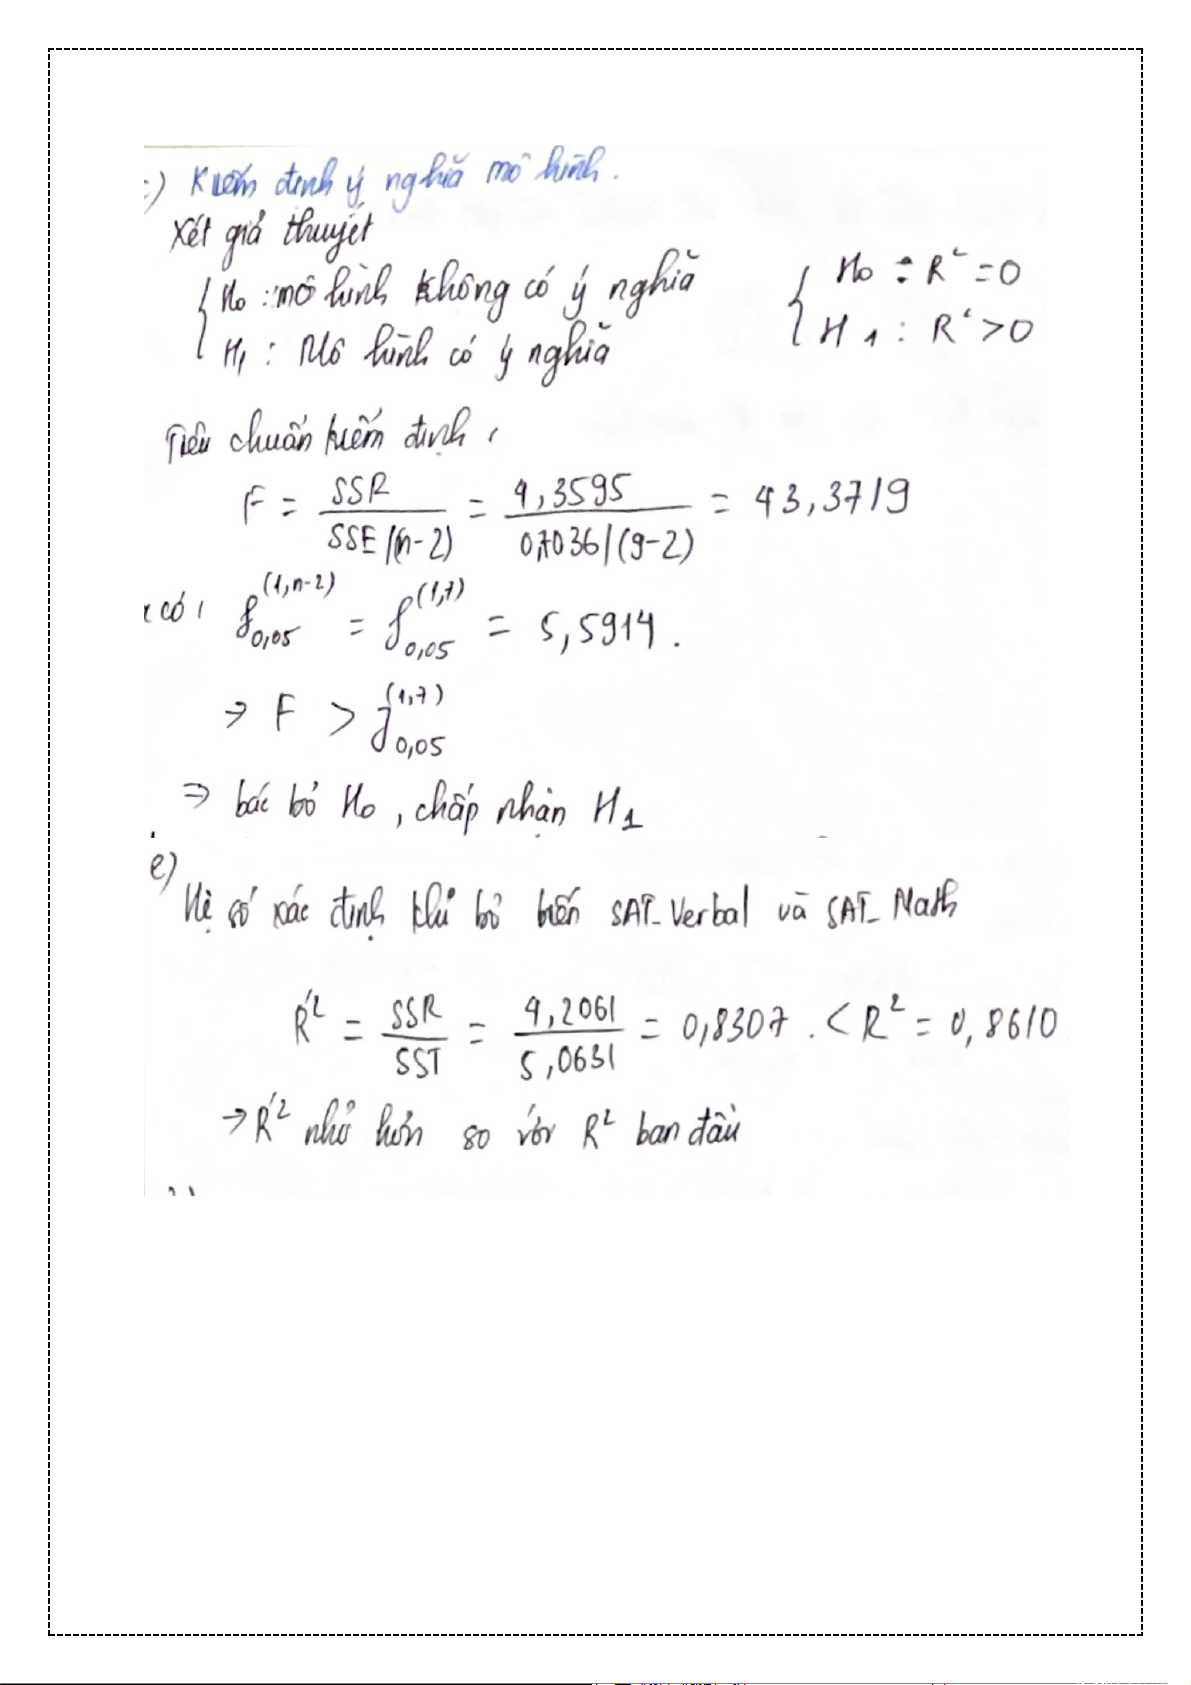 c) Kiểm định ý nghĩa mô hình.
Xét giả thuyết
{ H₀ : mô hình không có ý nghĩa { H₀ : R² = 0
H₁ : Mô hình có ý nghĩa H₁ : R² > 0
Tiêu chuẩn kiểm định :
F = SSR / (SSE/(n-2)) = 4,3595 / (0,7036/(9-2)) = 43,3719
có : f₀,₀₅^(1,n-2) = f₀,₀₅^(1,7) = 5,5914.
→ F > f₀,₀₅^(1,7)
⇒ bác bỏ H₀, chấp nhận H₁
e)
Hệ số xác định khi bỏ biến SAT_Verbal và SAT_Math
R'² = SSR / SST = 4,2061 / 5,0631 = 0,8307 . < R² = 0,8610
→ R'² nhỏ hơn so với R² ban đầu